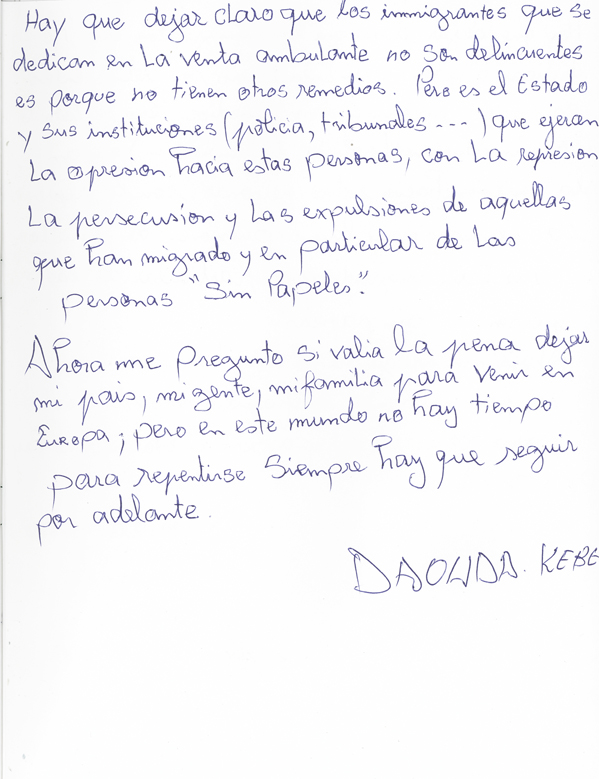 Hay que dejar claro que los immigrantes que se
dedican en la venta ambulante no son delincuentes
es porque no tienen otros remedios. Pero es el Estado
y sus instituciones (policia, tribunales ---) que ejercen
la opresion hacia estas personas, con la represion
La persecusion y las expulsiones de aquellas
que han migrado y en particular de las
personas "Sin Papeles".
Ahora me pregunto si valia la pena dejar
mi pais, mi gente, mi familia para venir en
Europa; pero en este mundo no hay tiempo
para repentirse siempre hay que seguir
por adelante.
DAOUDA. KEBE